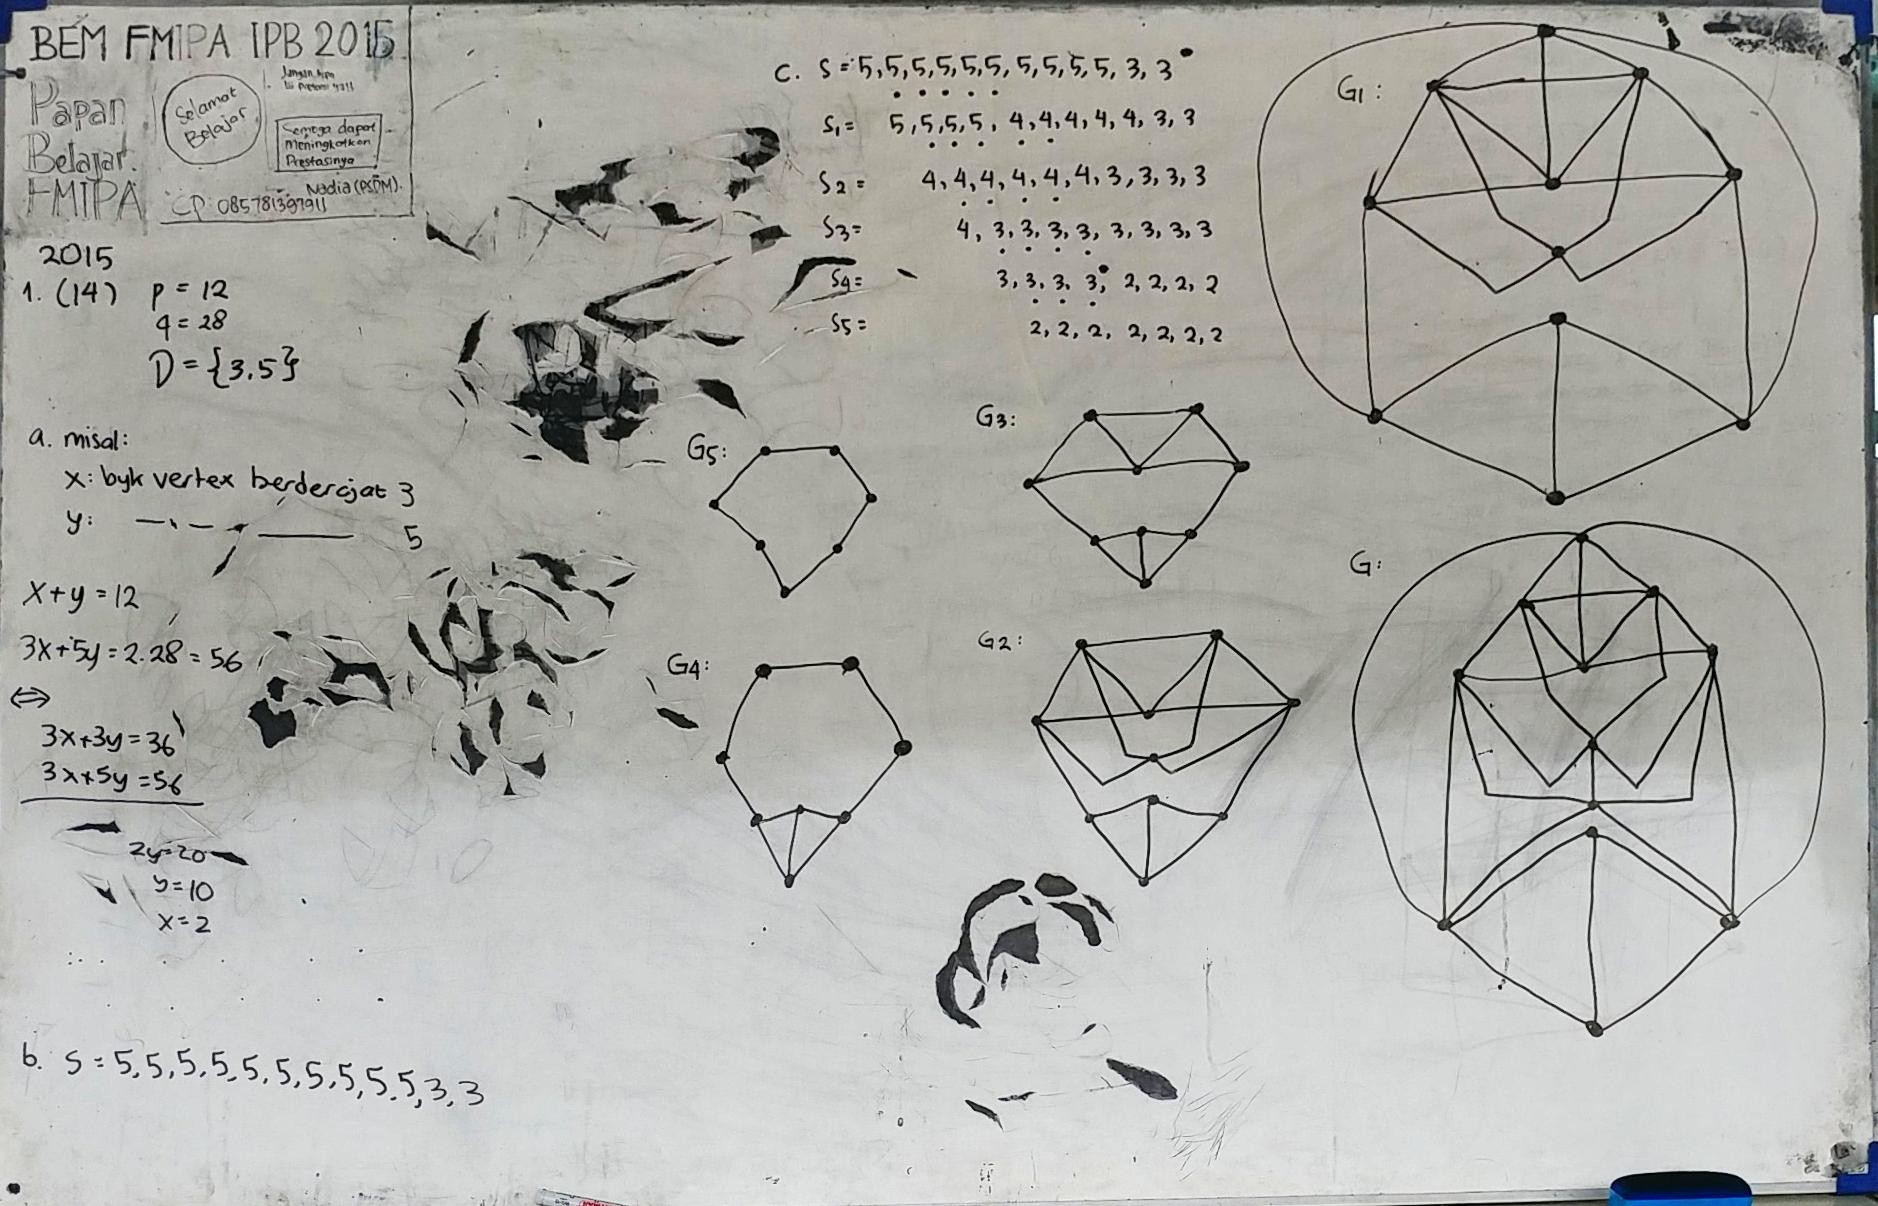 BEM FMIPA IPB 2015
Papan
Belajar.
FMIPA
Selamat
Belajar
Semoga dapat
Meningkatkan
Prestasinya
Nadia (PSDM).
CP: 085781397911
2015
1. (14) p = 12
q = 28
D = {3,5}
a. misal:
x: byk vertex berderajat 3
y: 5
x+y = 12
3x+5y = 2.28 = 56
⇔
3x+3y = 36
3x+5y = 56
2y=20
y=10
x=2
b. S = 5,5,5,5,5,5,5,5,5,5,3,3
c. S = 5,5,5,5,5,5,5,5,5,5,3,3
S1= 5,5,5,5,4,4,4,4,4,3,3
S2= 4,4,4,4,4,4,3,3,3,3
S3= 4,3,3,3,3,3,3,3,3
S4= 3,3,3,3,2,2,2,2
S5= 2,2,2,2,2,2,2
G5:
G3:
G1:
G4:
G2:
G: